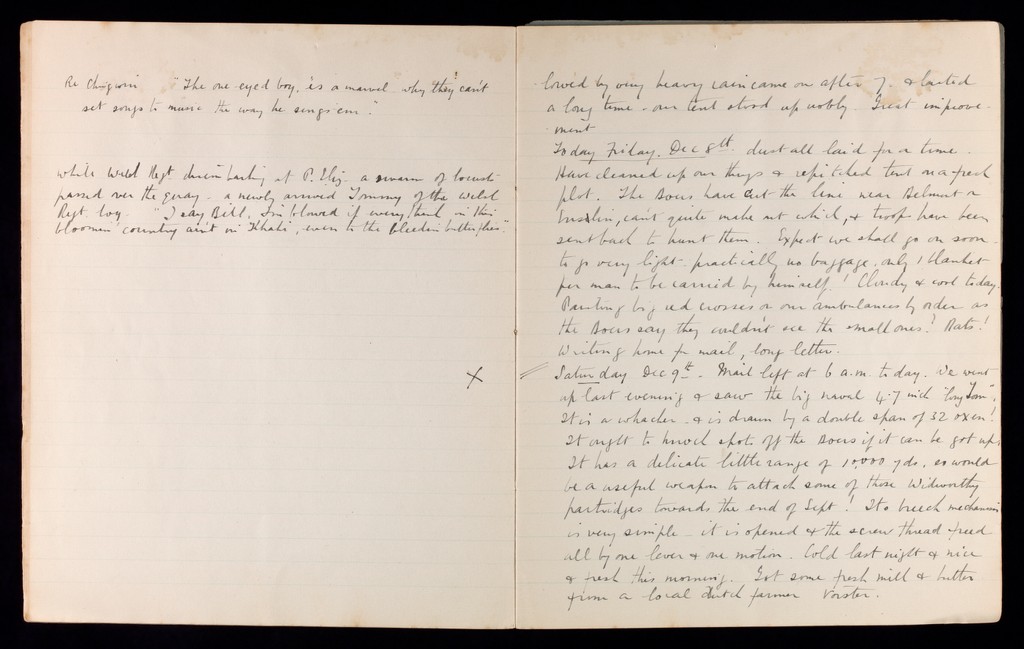 Re Chigwin "The one eyed boy, 'e's a marvel why they can't
set songs to music the way he sings 'em."
while Welsh Regt disembarking at P. Eliz. a swarm of locusts
passed over the quay - a newly arrived Tommy of the Welsh
Regt loq. "I say Bill, I'm blowed if everything in this
bloomin' country ain't in Khaki, even to the bleedin butterflies."
X
lowed by very heavy rain came on after 7. & lasted
a long time - our tent stood up nobly. Great improve-
ment
Today Friday. Dec 8th. dust all laid for a time.
Have cleaned up our things & repitched tent on a fresh
plot. The Boers have cut the line near Belmont or
can't quite make out which, & troops have been
sent back to hunt them. Expect we shall go on soon
to go very light practically no baggage, only 1 blanket
per man to be carried by himself! Cloudy & cool today.
Painting big red crosses on our ambulances by order as
the Boers say they couldn't see the small ones! Rats!
Writing home for mail, long letter.
Saturday Dec 9th. Mail left at 6 a.m. today. We went
up last evening & saw the big naval 4.7 inch "Long Tom",
It is a whacker & is drawn by a double span of 32 oxen!
It ought to knock spots off the Boers if it can be got up.
It has a delicate little range of 10,000 yds, so would
be a useful weapon to attack some of those Widworthy
partridges towards the end of Sept! Its breech mechanism
is very simple - it is opened & the screw thread freed
all by one lever & one motion. Cold last night & nice
& fresh this morning. Got some fresh milk & butter
from a local dutch farmer Vorster.